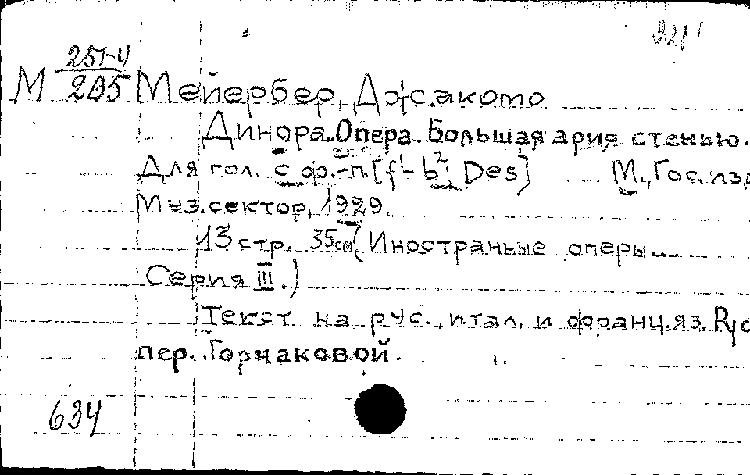 М 251-V/205 Мейербер, Джакомо
Динора. Опера. Большая ария с тенью.
Для гол. с ф.-п. [f¹-b²; Des] М., Гос. изд
Муз. сектор, 1929.
13 стр. 35см (Иностранные оперы...
Серия III.)
Текст на рус., итал. и франц. яз. Рус
пер. Горчаковой.
634